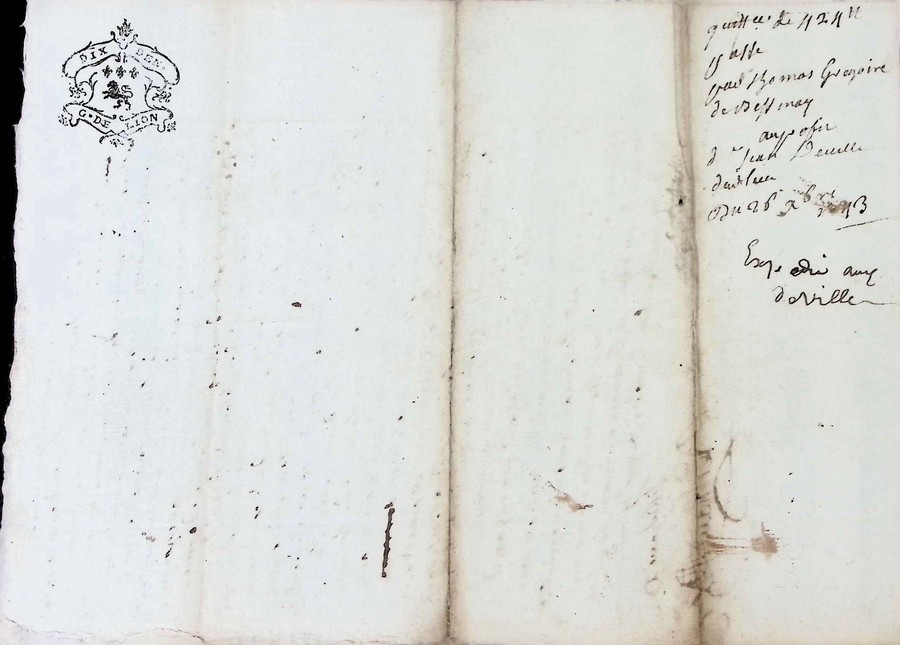 DIX DEN.
G. DE LION
quittce de 424 ll
passe
par thomas Gregoire
de Bessinay
au profit
d Jean Deville
Du 26 xbre 1743
Expedié aux
deville